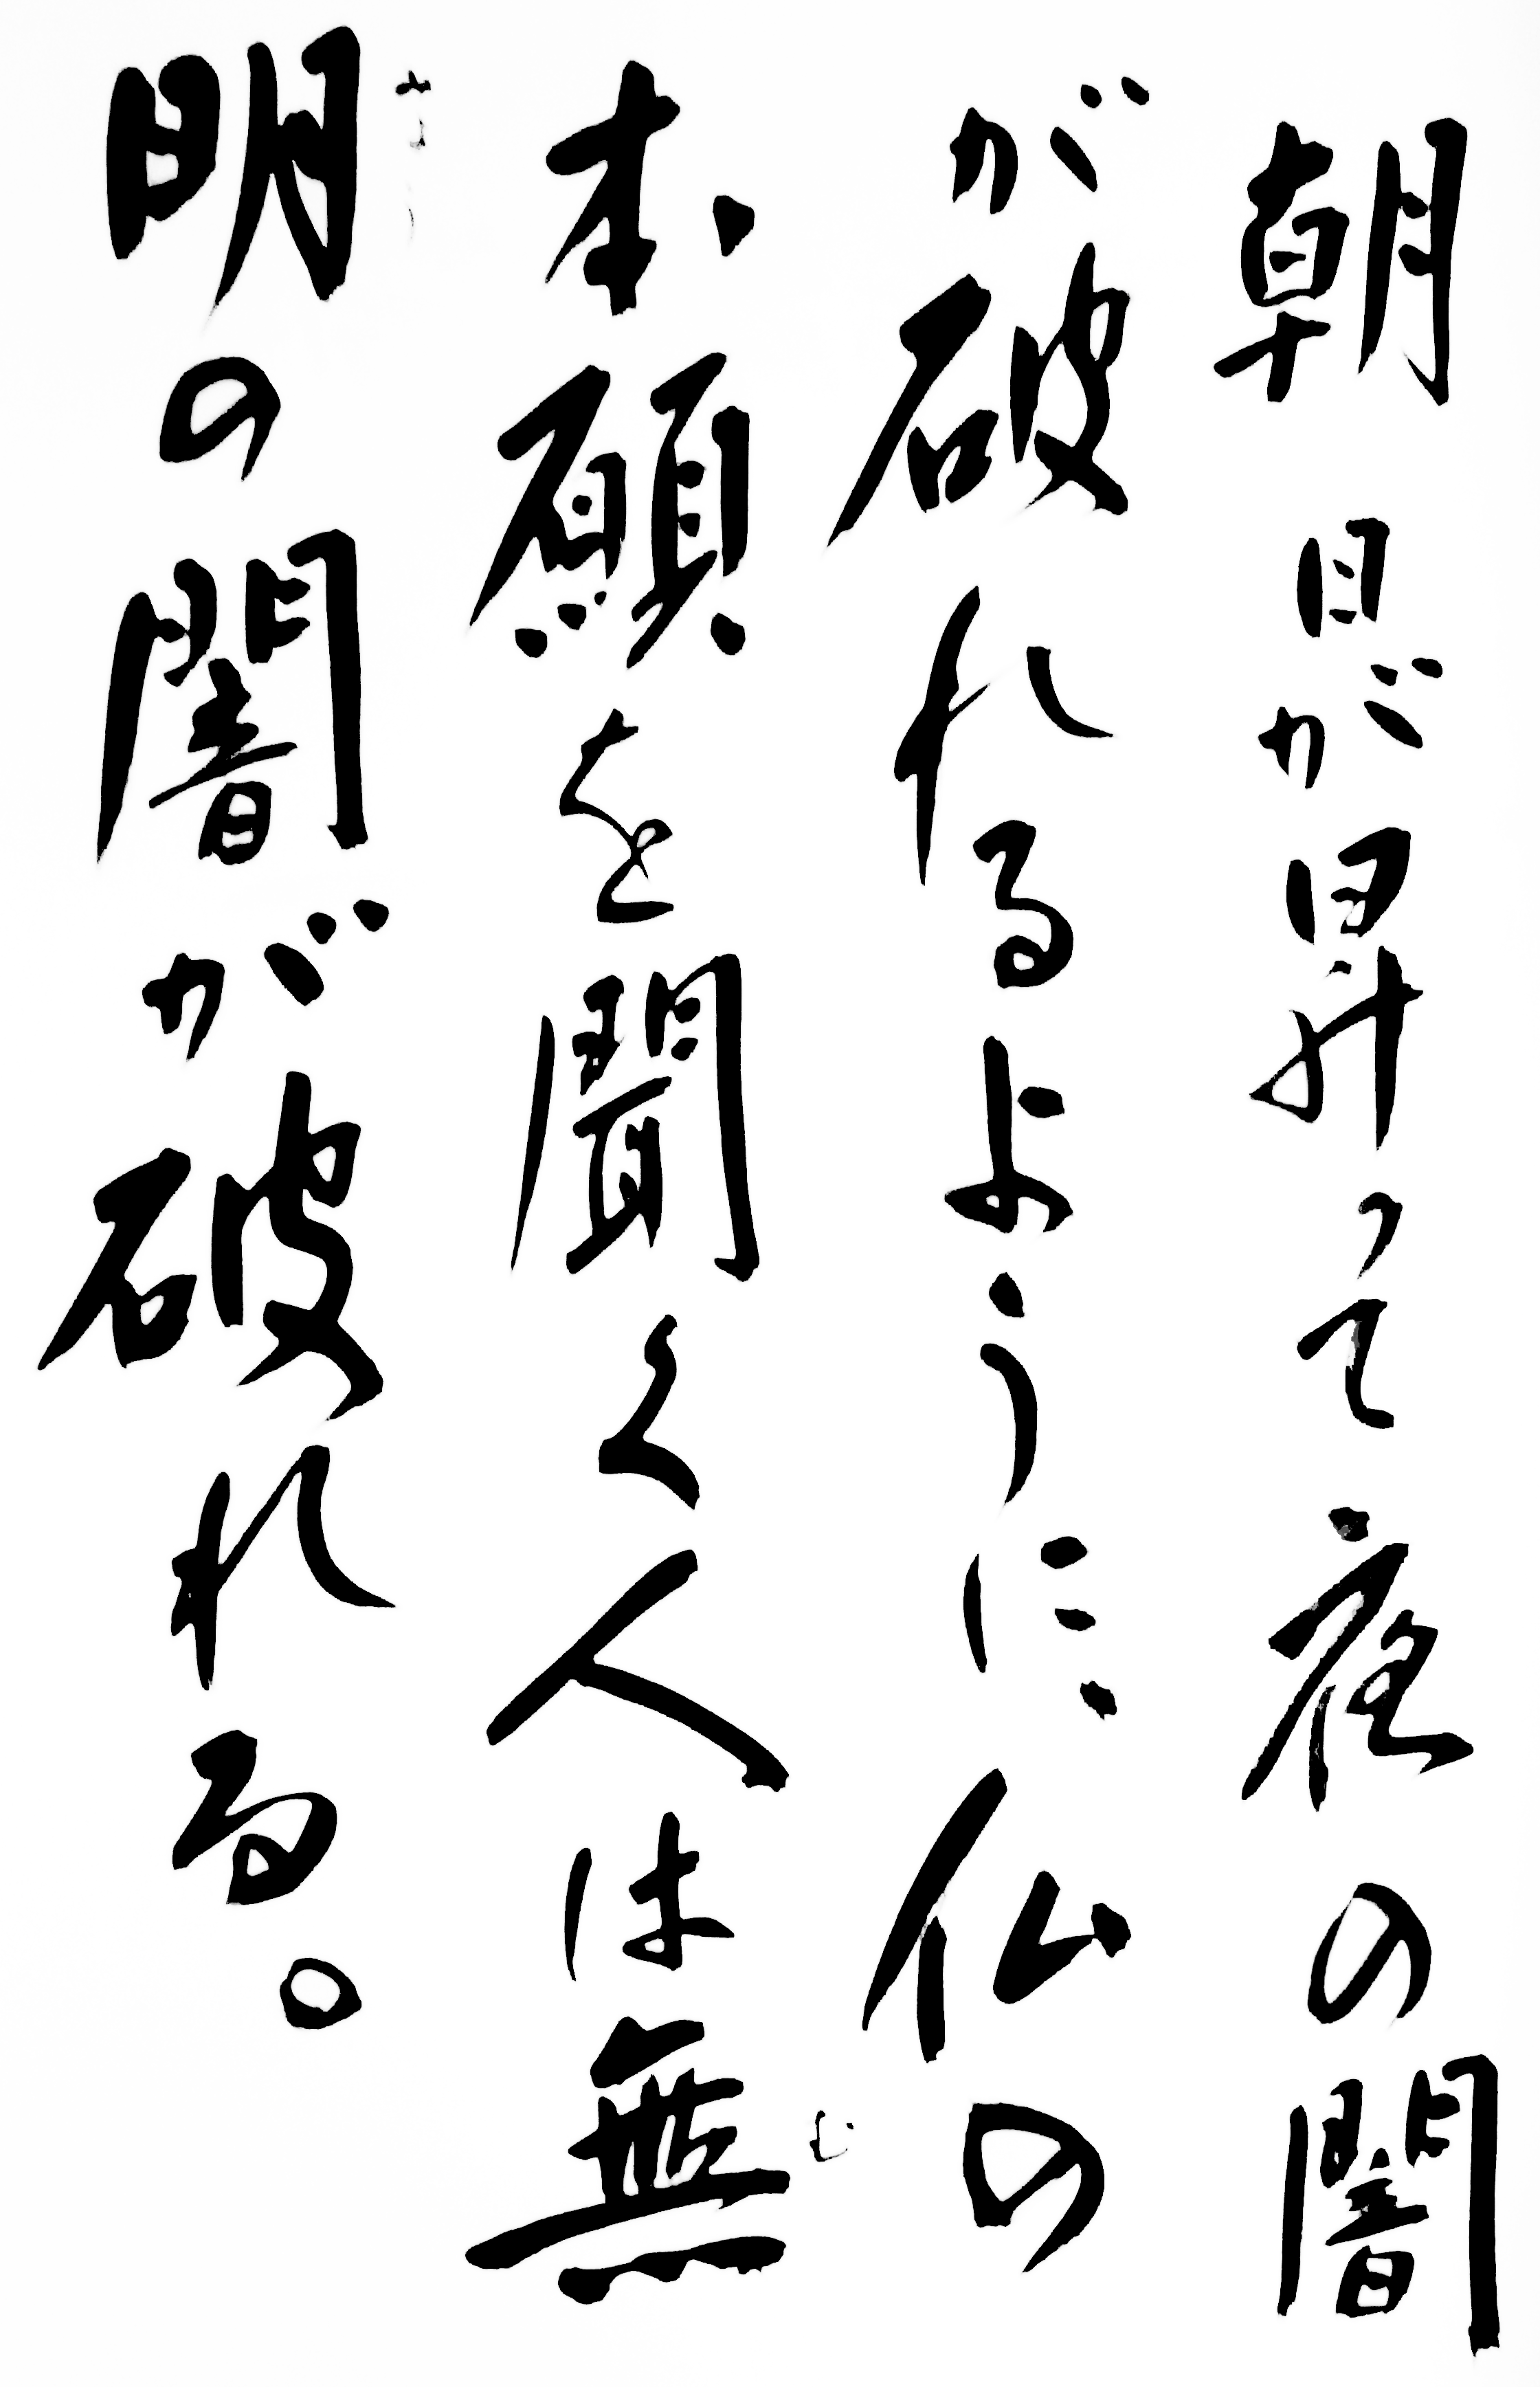 朝日が昇って夜の闇
が破れるように、仏の
本願を聞く人は無
明の闇が破れる。